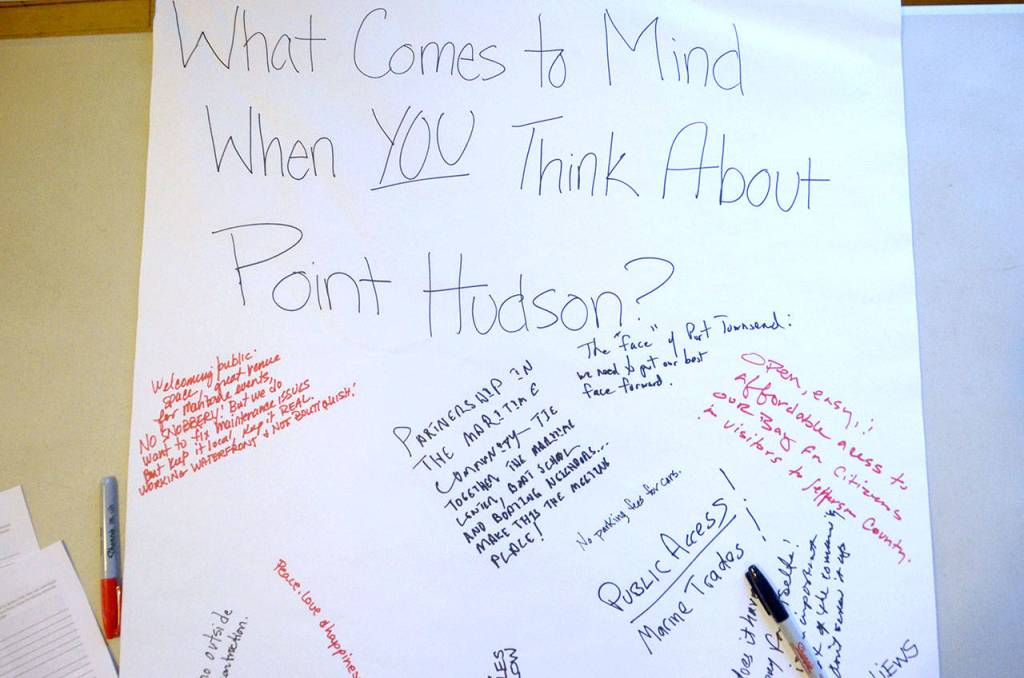 What Comes to Mind
When YOU Think About
Point Hudson?
The "face" of Port Townsend:
we need to put our best
face forward.
Welcoming public
space, great venue
for Maritime events,
NO SNOBBERY! But we do
want to fix maintenance ISSUES
But keep it local, keep it REAL.
WORKING WATERFRONT & NOT BOUTIQUISH!
PARTNERSHIP IN
THE MARITIME
COMMUNITY - TIE
TOGETHER THE MARITIME
CENTER, BOAT SCHOOL
AND BOATING NEIGHBORS...
MAKE THIS THE MEETING
PLACE!
Open, easy, !
affordable access to
our Bay for Citizens
& visitors to Jefferson County.
No parking fees for cars.
PUBLIC ACCESS!
Marine Trades!
Peace, love & happiness
no outside
Sharpie
does it have
important
of the community
don't screw it up
VIEWS